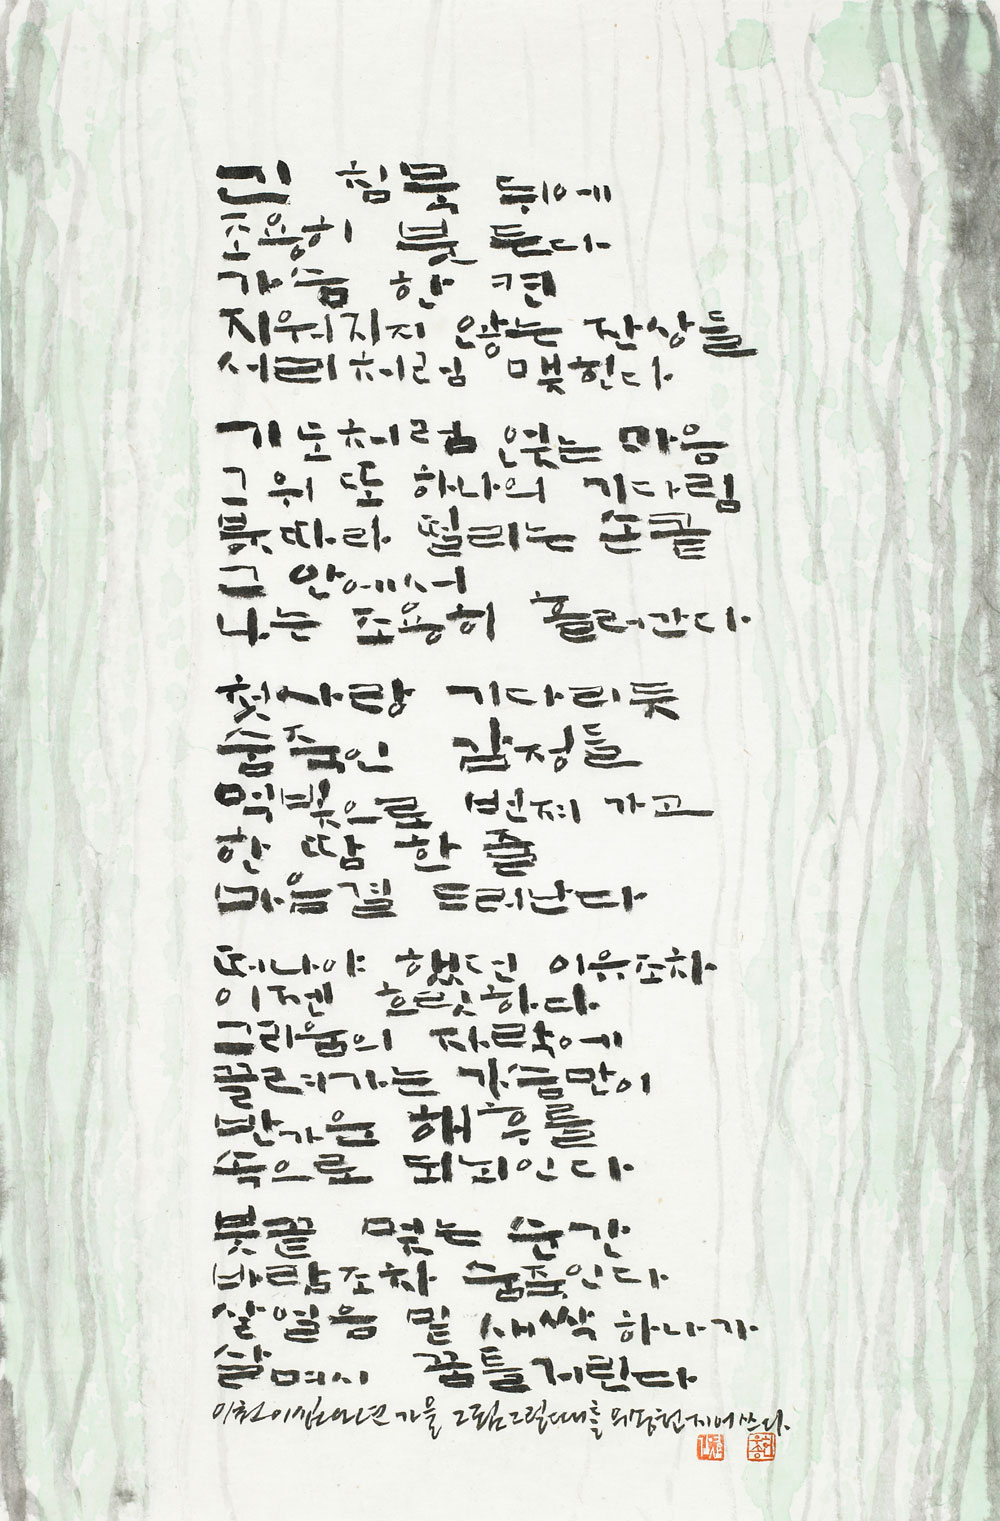 긴 침묵 뒤에
조용히 붓 든다
가슴 한 켠
지워지지 않는 잔상들
서리처럼 맺힌다
기도처럼 얹는 마음
그 위 또 하나의 기다림
붓따라 떨리는 손끝
그 안에서
나는 조용히 흘러간다
첫사랑 기다리듯
숨죽인 감정들
먹빛으로 번져 가고
한 땀 한 줄
마음결 드러난다
떠나야 했던 이유조차
이젠 흐릿하다
그리움의 자락에
끌려가는 가슴만이
반가운 해후를
속으로 되뇌인다
붓끝 멎는 순간
바람조차 숨죽인다
살얼음 밑 새싹 하나가
살며시 꿈틀거린다
이천이십오년 가을 그림그릴때를 지어쓰다.